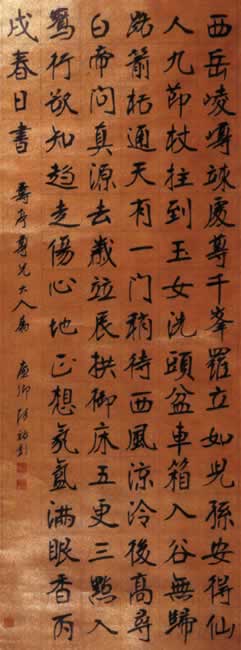 西岳崚嶒竦處尊千峯羅立如兒孫安得仙
人九節杖拄到玉女洗頭盆車箱入谷無歸
路箭栝通天有一门稍待西風涼冷後高尋
白帝問真源去歲茲辰拱御床五更三點入
鵷行欲知趨走傷心地正想氛氳滿眼香丙
戌春日書 尊兄大人